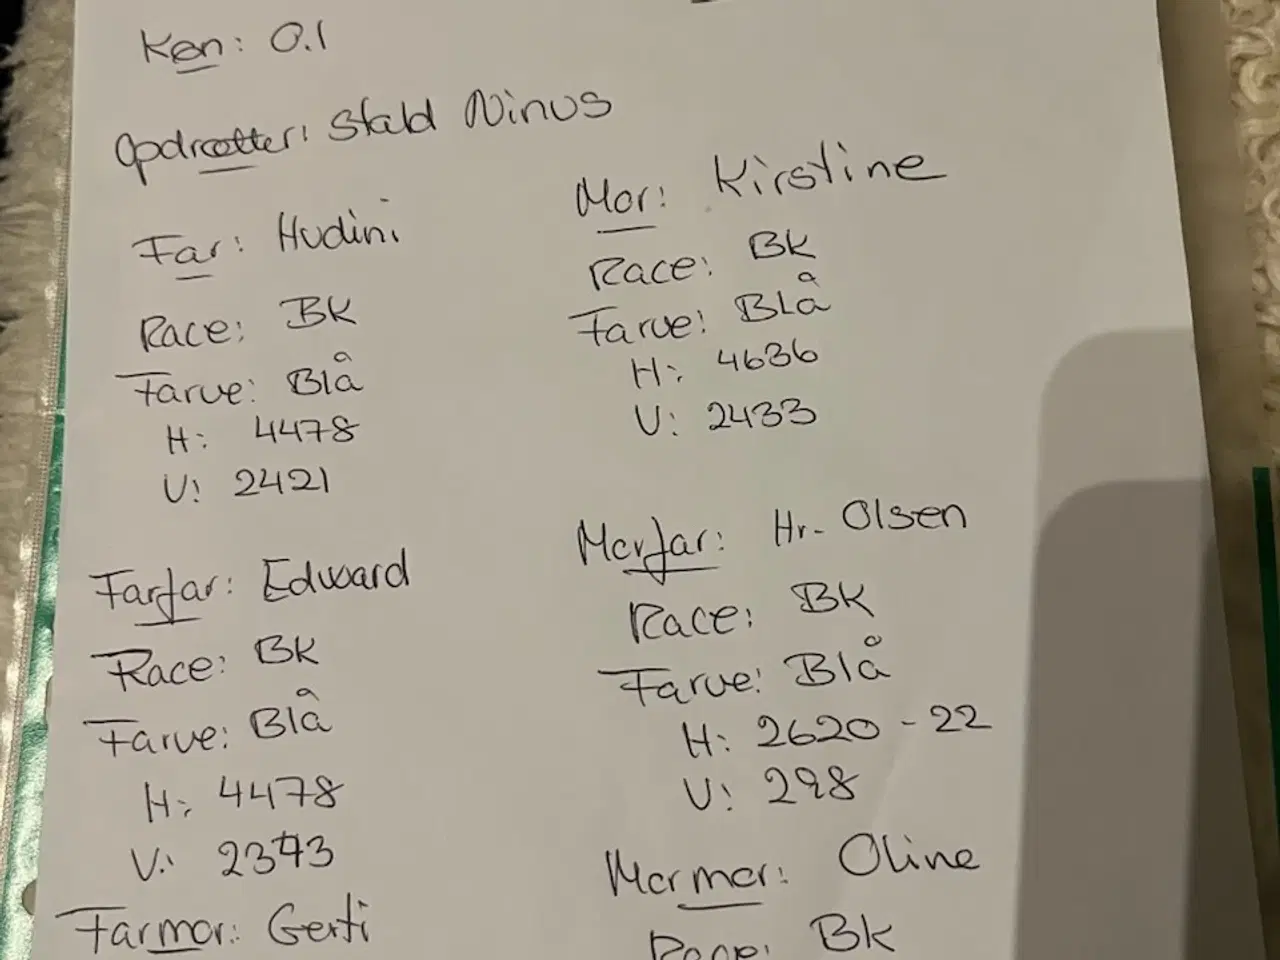 Køn: 0.1
Opdrætter: Stald Ninus
Far: Hudini
Race: BK
Farve: Blå
H: 4478
V: 2421
Mor: Kirstine
Race: BK
Farve: BLå
H: 4636
V: 2433
Farfar: Edward
Race: BK
Farve: Blå
H: 4478
V: 2373
Farmor: Gerti
Morfar: Hr. Olsen
Race: BK
Farve: Blå
H: 2620-22
V: 298
Mormor: Oline
Race: BK